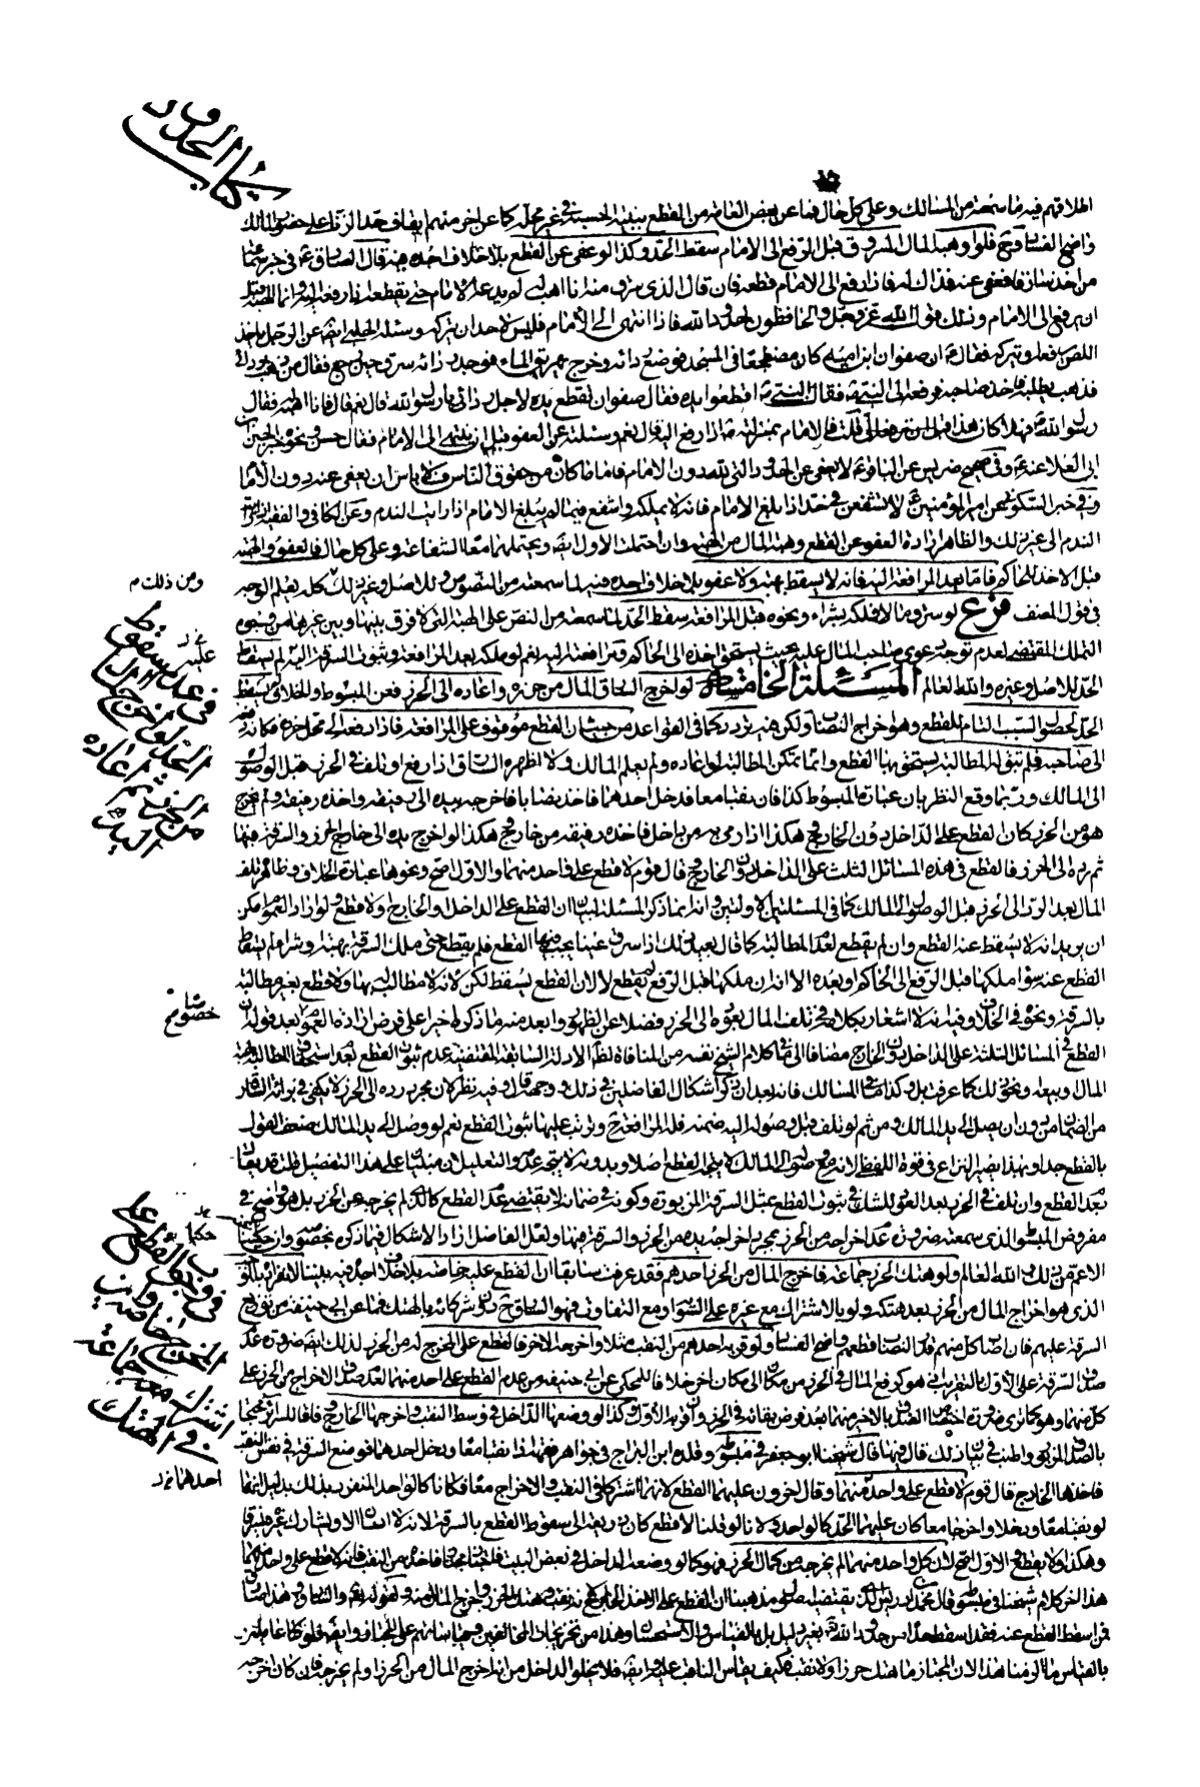 كتاب الحدود
اطلاقهم فيه ما سمعته من المسالك وعلى كل حال فما عن بعض العامة من القطع بنية الحسبة في غير محله كما عن اخر منهم ايقاف حد الزنا على حضور المالك
واضح الفساد وح فلو وهبه المال المسروق قبل الرفع الى الامام سقط الحد وكذا لو عفى عن القطع بلا خلاف اجده فيه قال الصادق ع في خبر سماعة
من اخذ سارقا فعفى عنه فذاك له فاذا رفع الى الامام قطعه فان قال الذي سرق منه انا اهب له لم يدعه الامام حتى يقطعه اذا رفعه اليه وانما الهبة قبل
ان يرفع الى الامام وذلك قول الله عز وجل والحافظون لحدود الله فاذا انتهى الى الامام فليس لاحد ان يتركه وسئله الحلبي ايضا عن الرجل ياخذ
اللص يدفعه او يتركه فقال ع ان صفوان ابن امية كان مضطجعا في المسجد فوضع ردائه وخرج يهريق الماء فوجد ردائه سرق حين رجع فقال من ذهب بردائي
فذهب يطلبه فاخذ صاحبه فرفعه الى النبي ص فقال النبي ص اقطعوا يده فقال صفوان تقطع يده لاجل ردائي يا رسول الله قال نعم قال فانا اهبه فقال
رسول الله ص فهلا كان هذا قبل ان ترفعه الى قلت فالامام بمنزلته اذا رفع اليه قال نعم وسئلته عن العفو قبل ان ينتهى الى الامام فقال حسن ونحوه خبر الحسين بن
ابى العلا عنه ع وفى صحيح ضريس عن الباقر ع لا يعفى عن الحدود التى لله دون الامام فاما ما كان من حقوق الناس فلا باس ان يعفى عنه دون الامام
وفى خبر السكونى عن امير المؤمنين ع لا يشفعن في حد اذا بلغ الامام فانه لا يملكه واشفع فيما لم يبلغ الامام اذا رايت الندم وعن الكافى والفقيه
الندم الى غير ذلك والظاهر ارادة العفو عن القطع وهبة المال من الهبة وان احتملت الاول ايضا ويحتملهما معا الشفاعة وعلى كل حال فالعفو والهبة
قبل الاخذ للحاكم فاما بعد المرافعة اليه فانه لا يسقط بهبة ولا عفو بلا خلاف اجده فيه لما سمعته من النصوص وللاصل وغير ذلك كله يعلم الوجه
في قول المصنف فرع لو سرق مالا فملكه بشراء ونحوه قبل المرافعة سقط الحد لما سمعته من النص على الهبة التى لا فرق بينها وبين غيرها من وجوه
التملك المقتضى لعدم توجه دعوى صاحب المال عليه بحيث يستحق اخذه الى الحاكم ومرافعته اليه نعم لو ملكه بعد المرافعة وثبوت السرقة اليه لم يسقط
الحد للاصل وغيره والله العالم المسئلة الخامسة لو اخرج السارق المال من حرزه واعاده الى الحرز فعن المبسوط والخلاف لم يسقط
الحد لحصول السبب التام للقطع وهو اخراج النصاب ولكن فيه تردد كما في القواعد من حيث ان القطع موقوف على المرافعة فاذا دفعه الى محل احرازه فكانه دفعه
الى صاحبه فلم تبق له المطالبة يستحق بها القطع وانما تمكن المطالبة لو اعاده ولم يعلم المالك ولا اظهره السارق اذا رفع او تلف في الحرز قبل الوصول
الى المالك وربما وقع النظر بان عبارة المبسوط كذا فان نقبا معا فدخل احدهما فاخذ نصابا فاخرجه بيده الى رفيقه واخذه رفيقه ولم يخرج
هو من الحرز كان القطع على الداخل دون الخارج وهكذا اذا رمى به من داخل فاخذه رفيقه من خارج وهكذا لو اخرج يده الى خارج الحرز والسرقة فيها
ثم رده الى الحرز فالقطع في هذه المسائل الثلث على الداخل دون الخارج وقال قوم لا قطع على واحد منهما والاول اصح ونحوها عبارة الخلاف وظاهره تلف
المال بعد الرد الى الحرز قبل الوصول الى المالك كما في المسئلتين الاولتين وانه انما ذكر المسئلة لبيان ان القطع على الداخل والخارج ولا قطع ولو اراد العموم امكن
ان يريد انه لا يسقط عنه القطع وان لم يقطع لعدم المطالبة كما قال بعيد ذلك اذا سرق عينا يجب فيها القطع فلم يقطع حتى ملك السرقة بهبة او شراء لم يسقط
القطع عنه سواء ملكها قبل الرفع الى الحاكم او بعده الا انه ان ملكها قبل الرفع لم يقطع لا لان القطع يسقط لكن لانه لا مطالب له بها ولا قطع بغير مطالبة
بالسرقة ونحوه في الخلاف وفيه انه لا اشعار بكلامه في تلف المال بعوده الى الحرز فضلا عن الظهور وابعد منه ما ذكره اخيرا على فرض ارادة العموم بعد قوله ان
القطع في المسائل الثلثة على الداخل دون الخارج مضافا الى ما في كلام الشيخ نفسه من المنافاة لظاهر الادلة السابقة المقتضية عدم ثبوت القطع بعد استحقاق المطالبة بهبة
المال او بيعه او نحو ذلك كما عرفت بل وكذا ما في المسالك فانه بعد ان ذكر اشكال الفاضلين في ذلك ووجهه قال وفيه نظر لان مجرد رده الى الحرز لا يكفى في براءة السارق
من الضمان من دون ان يصل الى يد المالك ومن ثم لو تلف قبل وصوله اليه ضمنه فله المرافعة ح ويترتب عليها ثبوت القطع نعم لو وصل الى يد المالك ضعف القول
بالقطع جدا وبهذا يصير النزاع في قوة اللفظى لانه مع وصوله الى المالك لا يتجه القطع اصلا وبدونه لا يتجه عدمه والتعليلان مبنيان على هذا التفصيل قلت قد يقال
بعدم القطع وان تلف في الحرز بعد العود للشك في ثبوت القطع بمثل السرقة المزبورة وكونه في ضمانه لا يقتضى عدم القطع كالذى لم يخرجه عن الحرز بل هو واضح في
مفروض المبسوط الذى سمعته ضرورة عدم اخراجه من الحرز بمجرد اخراج يده من الحرز والسرقة فيها ولعل الفاضل اراد الاشكال فيما ذكره بخصوصه وان حكينا
الاعم من ذلك والله العالم ولو هتك الحرز جماعة فاخرج المال من الحرز احدهم فقد عرفت سابقا ان القطع عليه خاصة بلا خلاف اجده فيه بيننا لانفراده بالموجب
الذى هو اخراج المال من الحرز بعد هتكه ولو بالاشتراك مع غيره على السواء او مع التفاوت فهو السارق ح دون شركائه في الهتك فما عن ابى حنيفة من توزيع
السرقة عليهم فان اصاب كل منهم قدر النصاب قطعهم واضح الفساد ولو قربه احدهم من النقب مثلا واخرجه الاخر فالقطع على المخرج له من الحرز لذلك ايضا ضرورة عدم
صدق السرقة على الاول بالتقريب الذى هو كرفع المال في الحرز من مكان الى مكان اخر خلافا للمحكى عن ابى حنيفة من عدم القطع على احد منهما لعدم صدق الاخراج من الحرز على
كل منهما وهو كما ترى ضرورة اختصاص الصدق بالاخر منهما بعد فرض بقائه في الحرز وان قربه الاول وكذا لو وضعها الداخل في وسط النقب واخرجها الخارج وفاقا للسرائر
بالصدق المزبور واطنب في بيان ذلك قال فيها قال شيخنا ابو جعفر في مبسوطه وقلده ابن البراج في جواهر فقهه اذا نقبا معا ودخل احدهما فوضع السرقة في نفس النقب
فاخذها الخارج قال قوم لا قطع على واحد منهما وقال اخرون عليهما القطع لانهما اشتركا في النقب والاخراج معا فكانا كالواحد المنفرد بذلك بدليل انهما
لو نقبا معا ودخلا واخرجا معا كان عليهما الحد كالواحد ولانا لو قلنا لا قطع كان ذريعة الى سقوط القطع بالسرقة لانه لا انسان الا ويشارك غيره فيسرقا
وهكذا ولا يقطع والاول اصح لان كل واحد منهما لم يخرجه من كمال الحرز فهو كما لو وضعه الداخل في بعض البيت فاجتاز مجتاز فاخذه من النقب فانه لا قطع على واحد منهما
هذا اخر كلام شيخنا في مبسوطه قال محمد بن ادريس الذى يقتضيه اصول مذهبنا ان القطع على الاخذ الخارج لانه نقب وهتك الحرز واخرج المال منه ولقوله تع والسارق وهذا سارق
فمن اسقط القطع عنه فقد اسقط حدا من حدود الله تع بغير دليل بل بالقياس والاستحسان وهذا من تخريجات المخالفين وقياساتهم على المجتاز وايضا فلو كنا عاملين
بالقياس ما الزمنا هذا لان المجتاز ما هتك حرزا ولا نقب فكيف يقاس الناقب عليه وايضا فلا يخلو الداخل من انه اخرج المال من الحرز او لم يخرجه فان كان اخرجه
ومن ذلك م
عليه
في عدم سقوط
الحد لو اخرج المال
من الحرز ثم اعاده
اليه
خصوص
في وجوب القطع على
المخرج خاصة وان
اشترك معه جماعة
في الهتك
احدهما